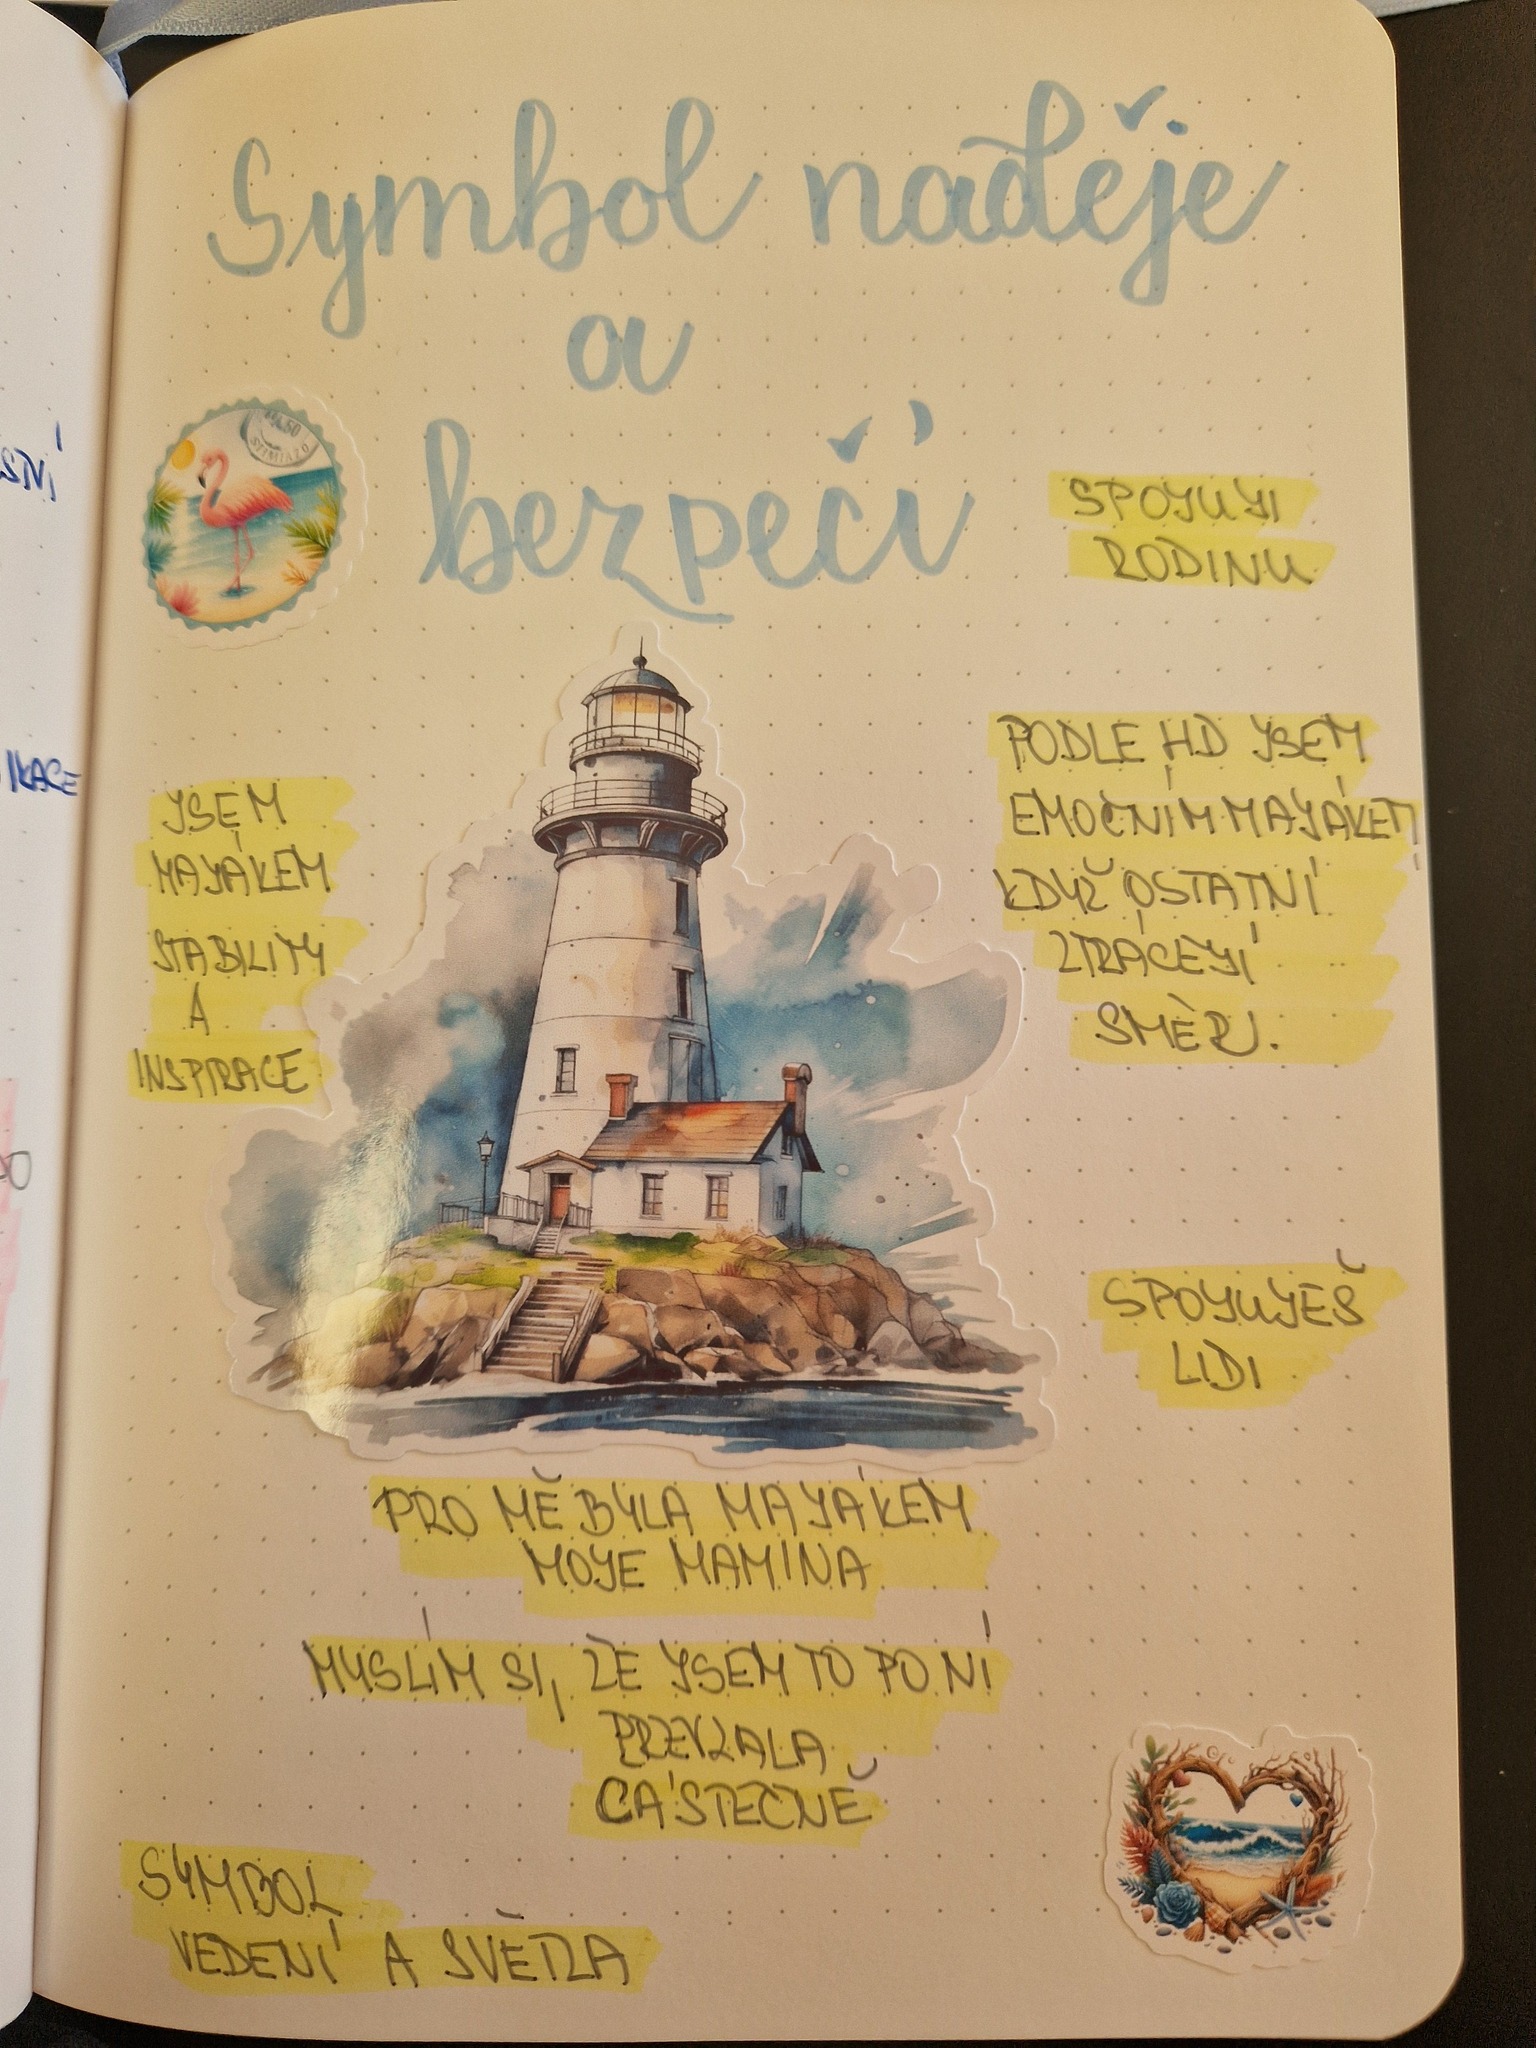 Symbol naděje
a
bezpečí
SPOJUJI
RODINU
PODLE HD JSEM
EMOČNÍM MAJÁKEM
KDYŽ OSTATNÍ
ZTRÁCEJÍ
SMĚR.
JSEM
MAJÁKEM
STABILITY
A
INSPIRACE
SPOJUJEŠ
LIDI
PRO MĚ BYLA MAJÁKEM
MOJE MAMINA
MYSLÍM SI, ŽE JSEM TO PO NÍ
PŘEVZALA
ČÁSTEČNĚ
SYMBOL
VEDENÍ A SVĚTLA